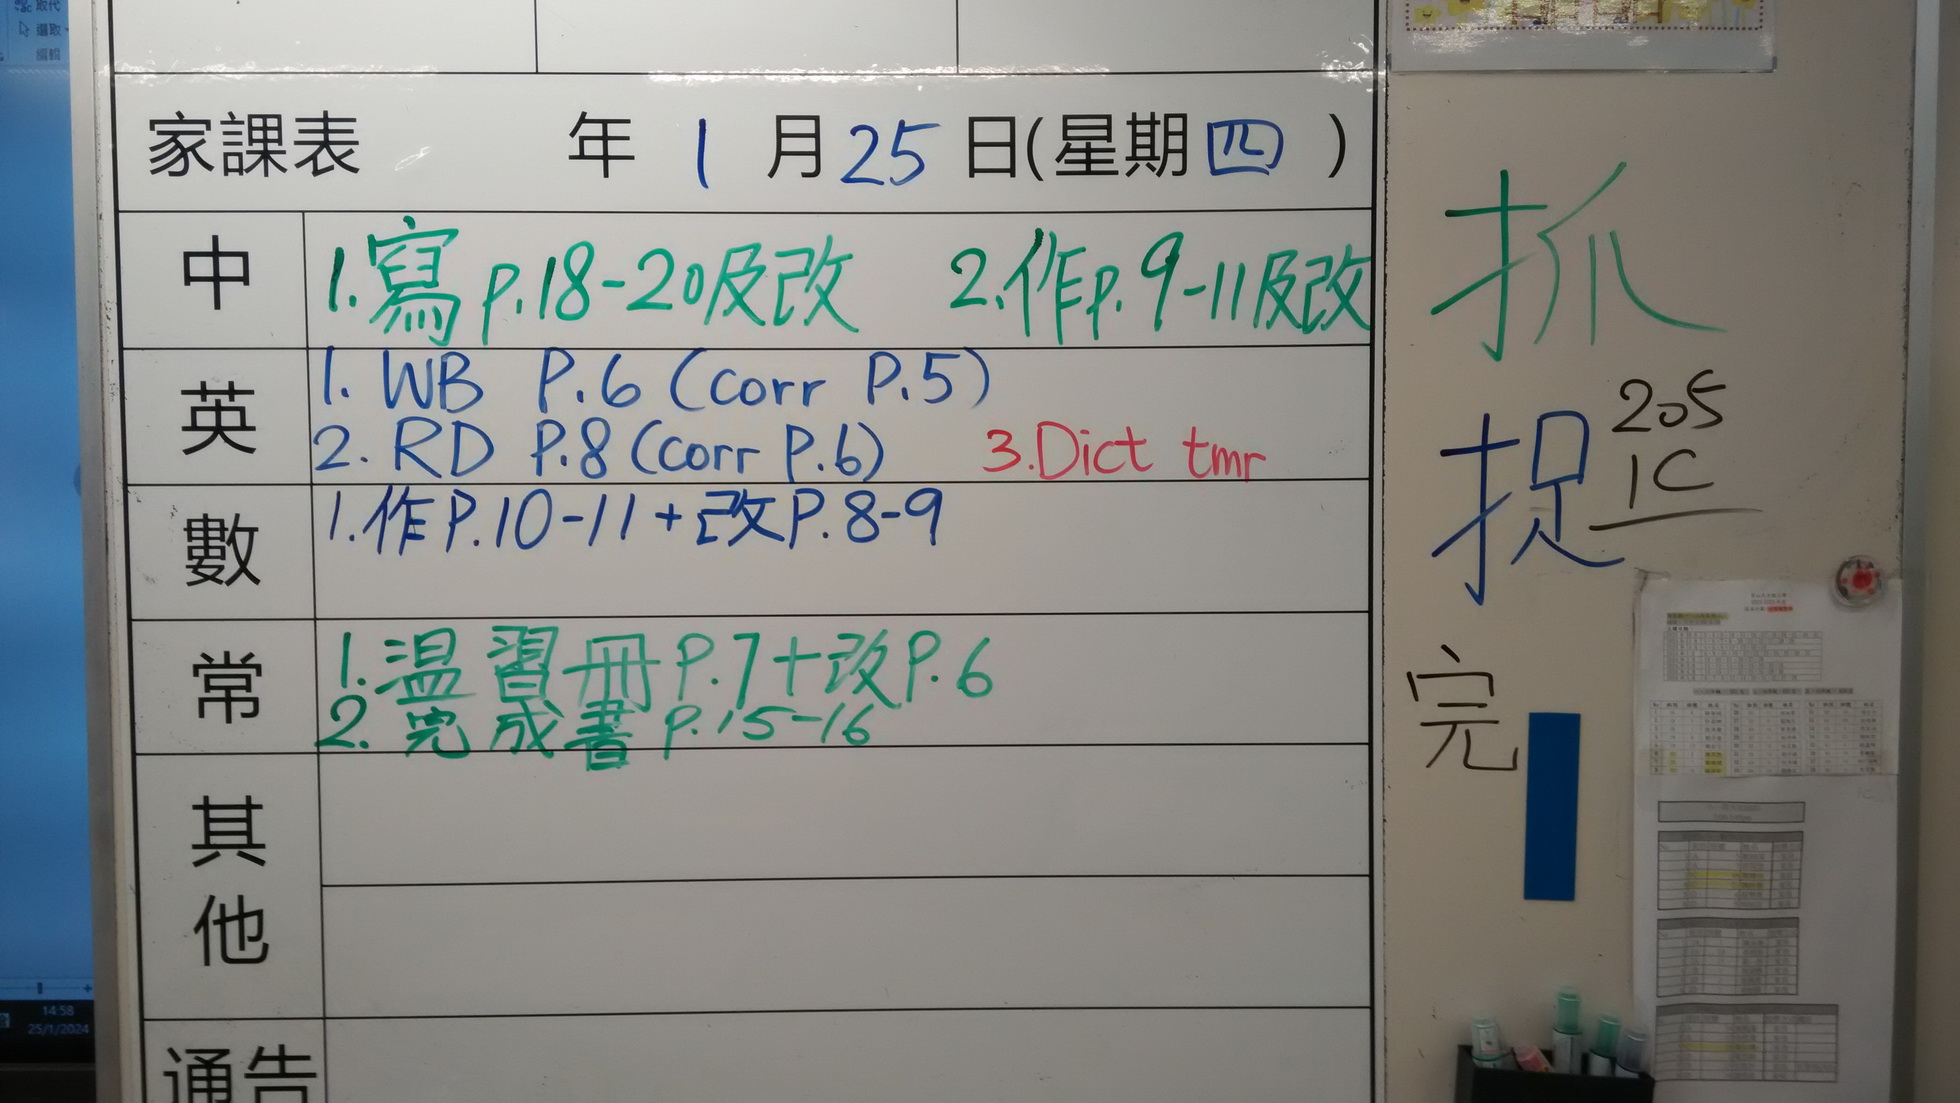 取代
選取
編輯
家課表 年 1 月 25 日(星期四)
中 1.寫p.18-20及改 2.作p.9-11及改
英 1. WB P.6 (corr P.5)
2. RD P.8 (corr P.6) 3.Dict tmr
數 1.作P.10-11+改P.8-9
常 1.温習冊P.7+改P.6
2.完成書p.15-16
其他
通告
抓
捉
205
1C
完
14:58
25/1/2024